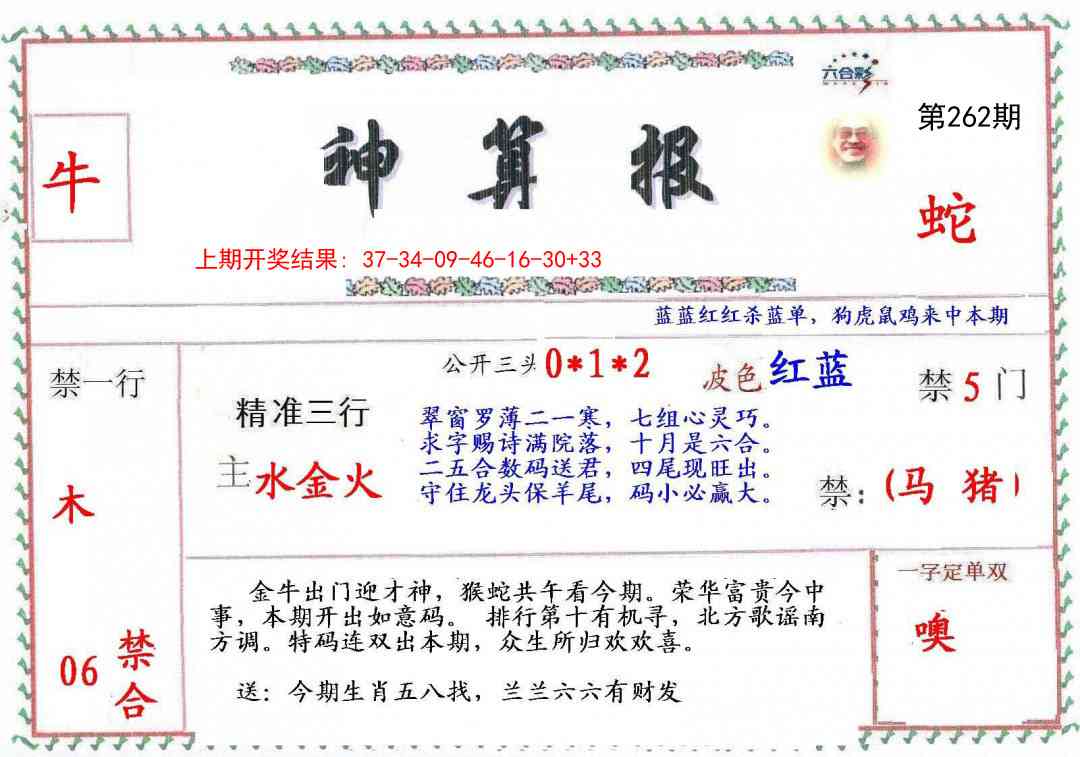 六合彩
第262期
牛
神算报
蛇
上期开奖结果：37-34-09-46-16-30+33
蓝蓝红红杀蓝单，狗虎鼠鸡来中本期
禁一行
公开三头0*1*2
波色红蓝
禁5门
精准三行
翠窗罗薄二一寒，七组心灵巧。
求字赐诗满院落，十月是六合。
主水金火
二五合数码送君，四尾现旺出。
守住龙头保羊尾，码小必赢大。
禁：(马 猪)
木
一字定单双
金牛出门迎才神，猴蛇共午看今期。荣华富贵今中
事，本期开出如意码。 排行第十有机寻，北方歌谣南
方调。特码连双出本期，众生所归欢欢喜。
噢
06
禁合
送：今期生肖五八找，兰兰六六有财发